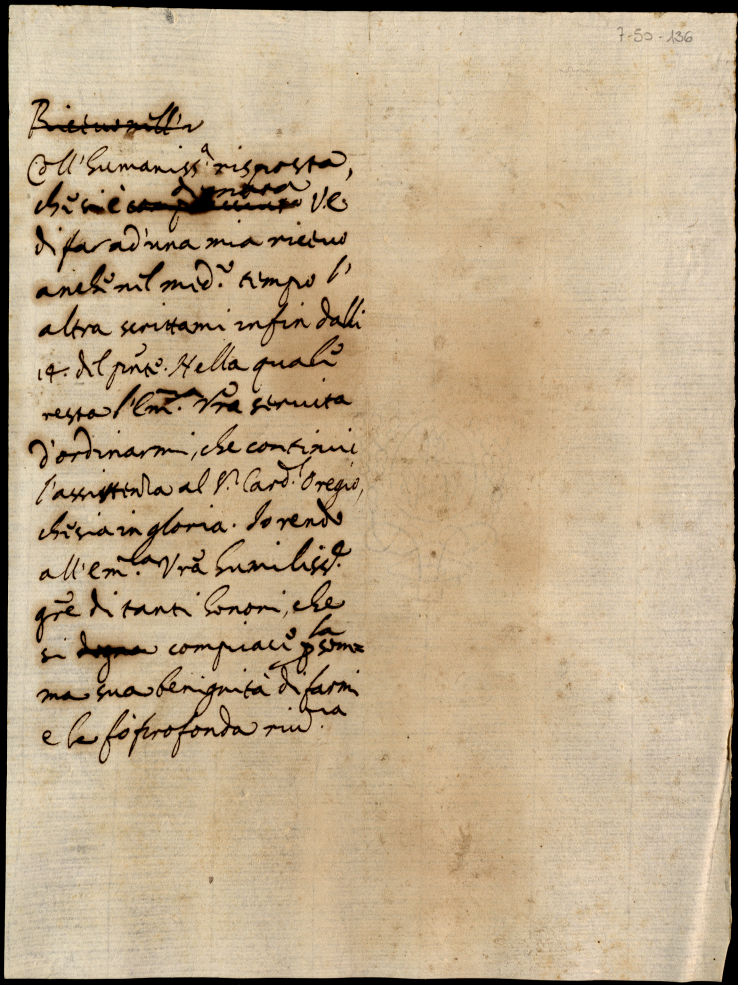 7-50-136
Coll'humaniss.ª risposta,
che si è degnata V.E.
di far ad'una mia riceuo
anche nel med.º tempo l'
altra scrittami infin dalli
14. del pnte. Nella quale
resta l'Em.ª Vra seruita
d'ordinarmi, che continui
l'assistenza al S.r Card.l Oregio,
che sia in gloria. Io rendo
all'em.ª Vra humiliss.e
gre di tanti honori, che
si compiace p la som=
ma sua benignità di farmi
e le fò profonda riu.ia